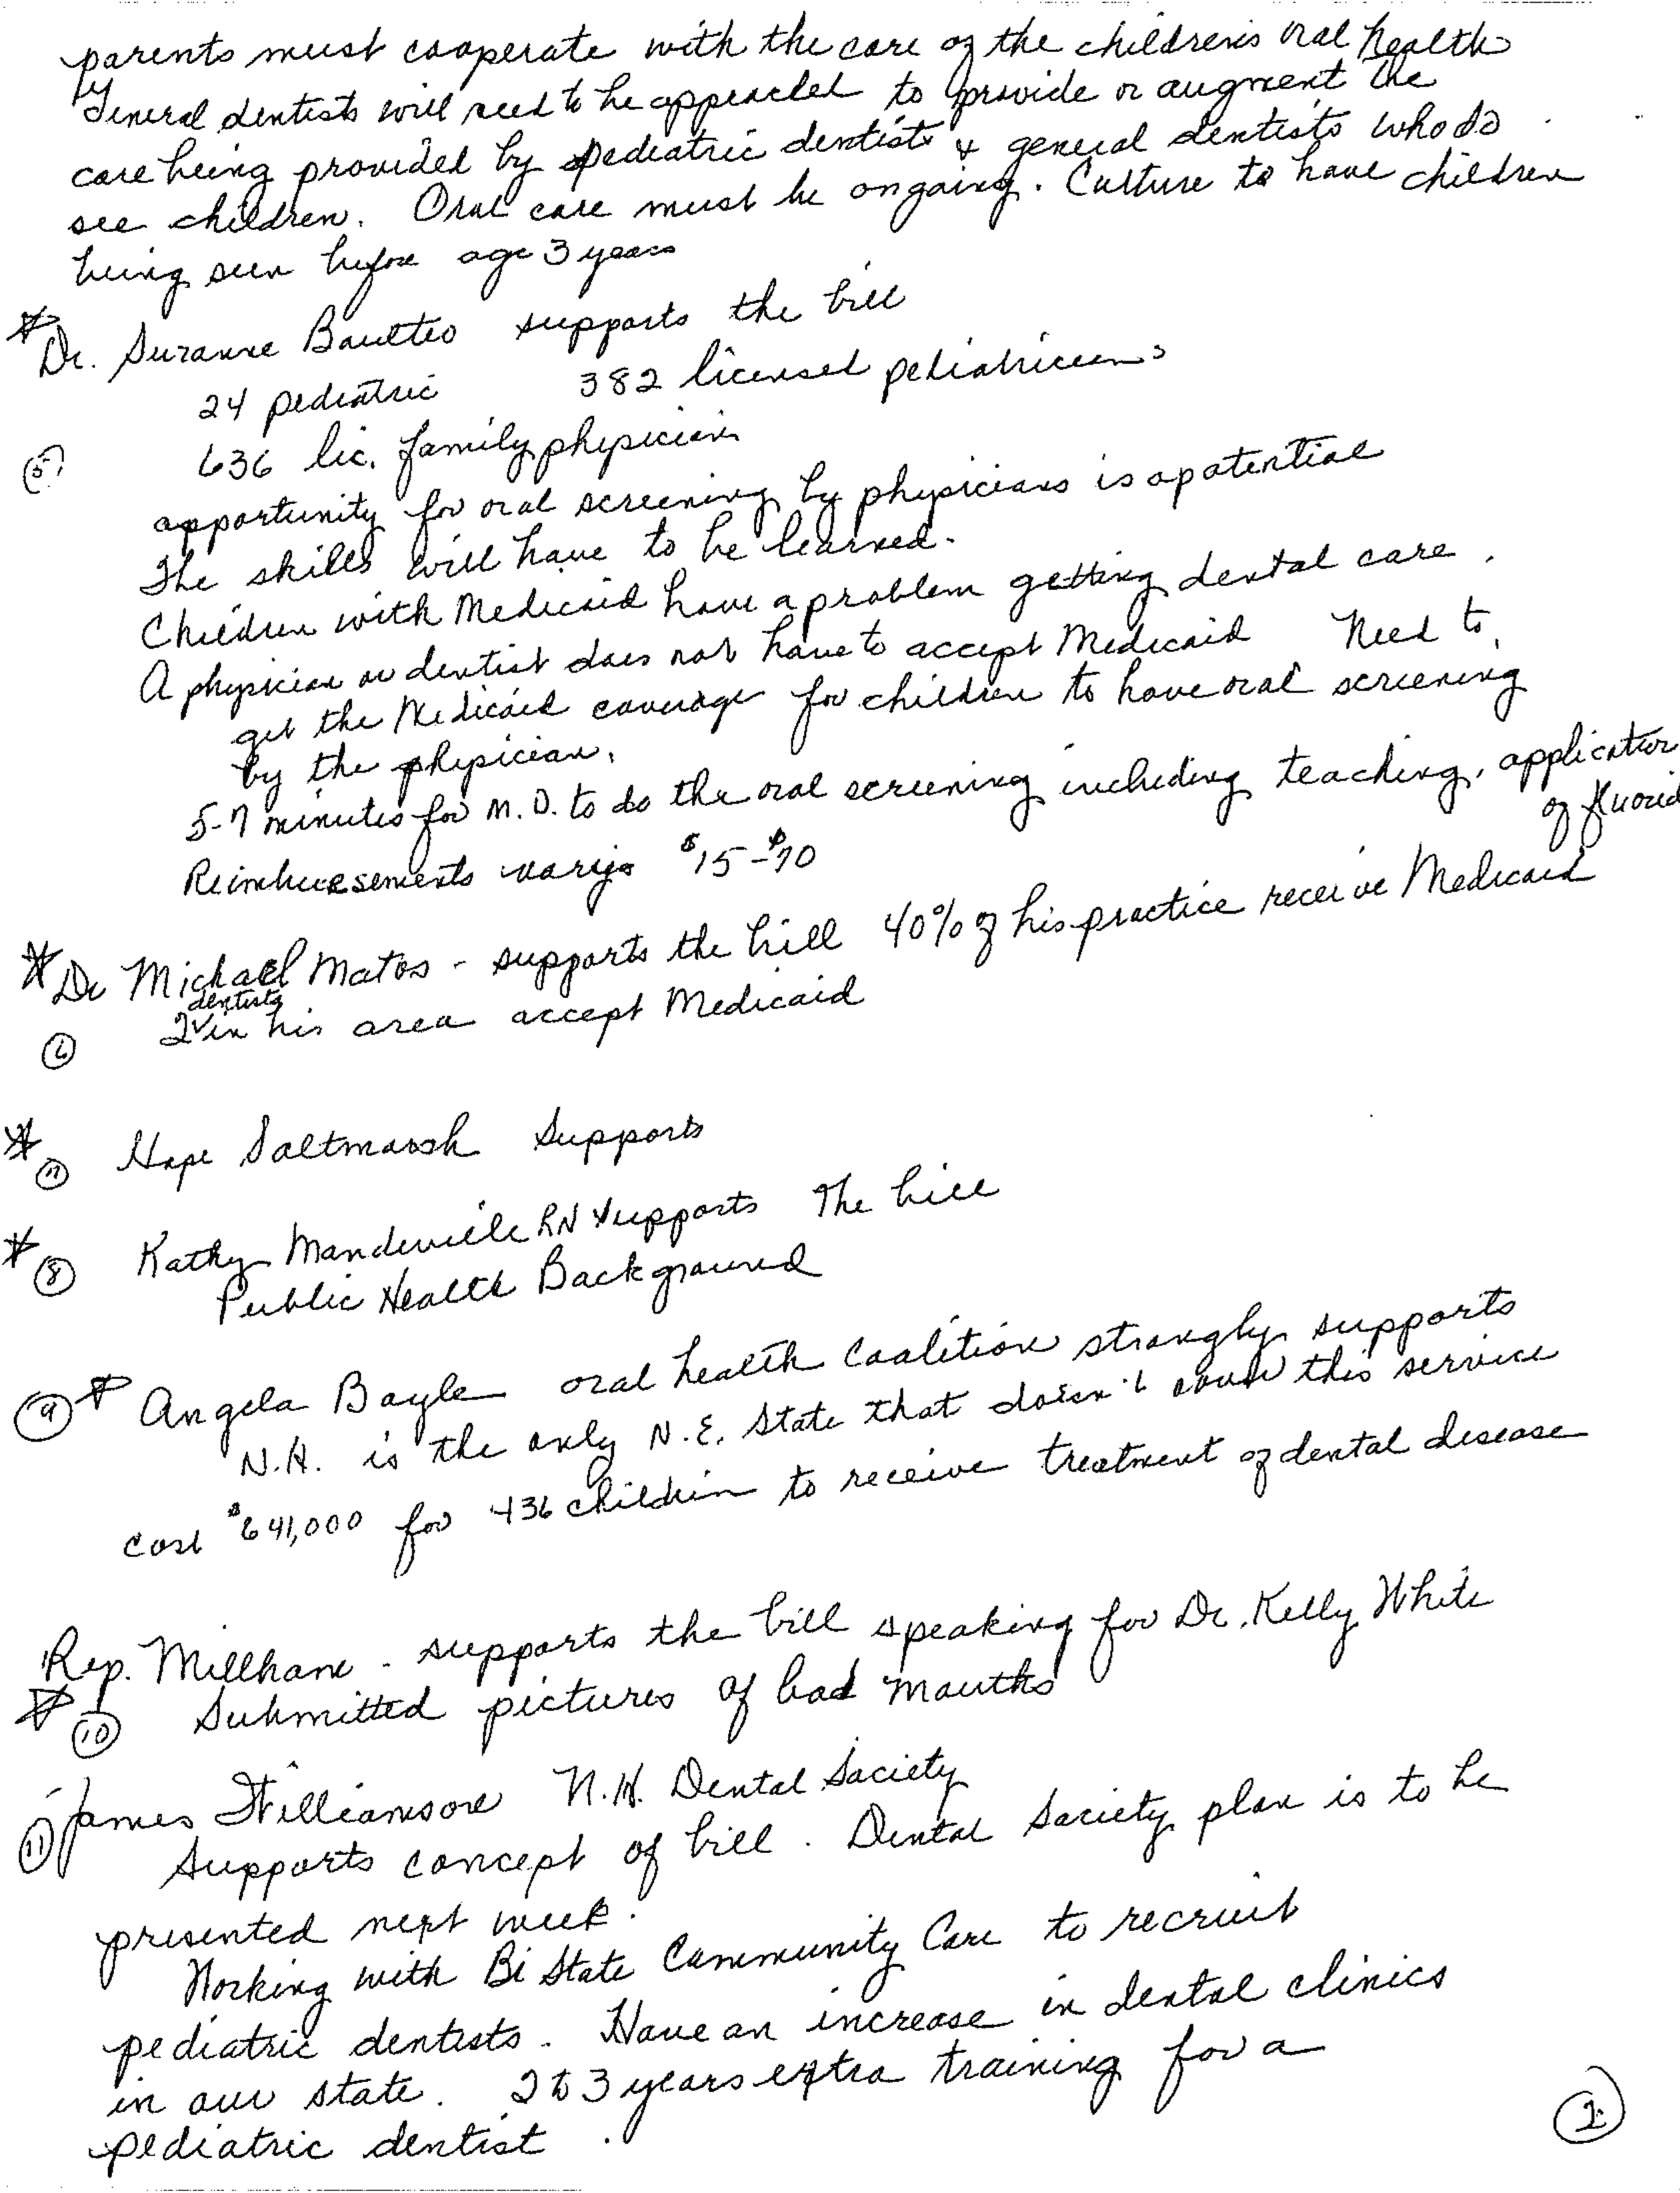 parents must cooperate with the care of the children's oral health
General dentists will need to be approached to provide or augment the
care being provided by pediatric dentists & general dentists who do
see children. Oral care must be ongoing. Culture to have children
being seen before age 3 years
* Dr. Suzanne supports the bill
24 pediatric 382 licensed pediatricians
(5) 636 lic. family physicians
opportunity for oral screening by physicians is a potential
The skills will have to be learned.
Children with Medicaid have a problem getting dental care.
A physician or dentist does not have to accept Medicaid Need to
get the Medicaid coverage for children to have oral screening
by the physician.
5-7 minutes for M.D. to do the oral screening including teaching, application
of fluorid
Reimbursements varies $15-$70
* Dr Michael Matos - supports the bill 40% of his practice receive Medicaid
(6) 2 dentists in his area accept Medicaid
* (7) Hope Saltmarsh supports
* (8) Kathy Mandeville RN supports The bill
Public Health Background
(9) * Angela Boyle oral health Coalition strongly supports
N.H. is the only N.E. State that doesn't cover this service
cost $641,000 for 436 children to receive treatment of dental disease
Rep. Millham - supports the bill speaking for Dr. Kelly White
* (10) Submitted pictures of bad mouths
(11) James Williamson N.H. Dental Society
Supports concept of bill. Dental Society plan is to be
presented next week.
Working with Bi State Community Care to recruit
pediatric dentists. Have an increase in dental clinics
in our state. 2 to 3 years extra training for a
pediatric dentist.
(2)